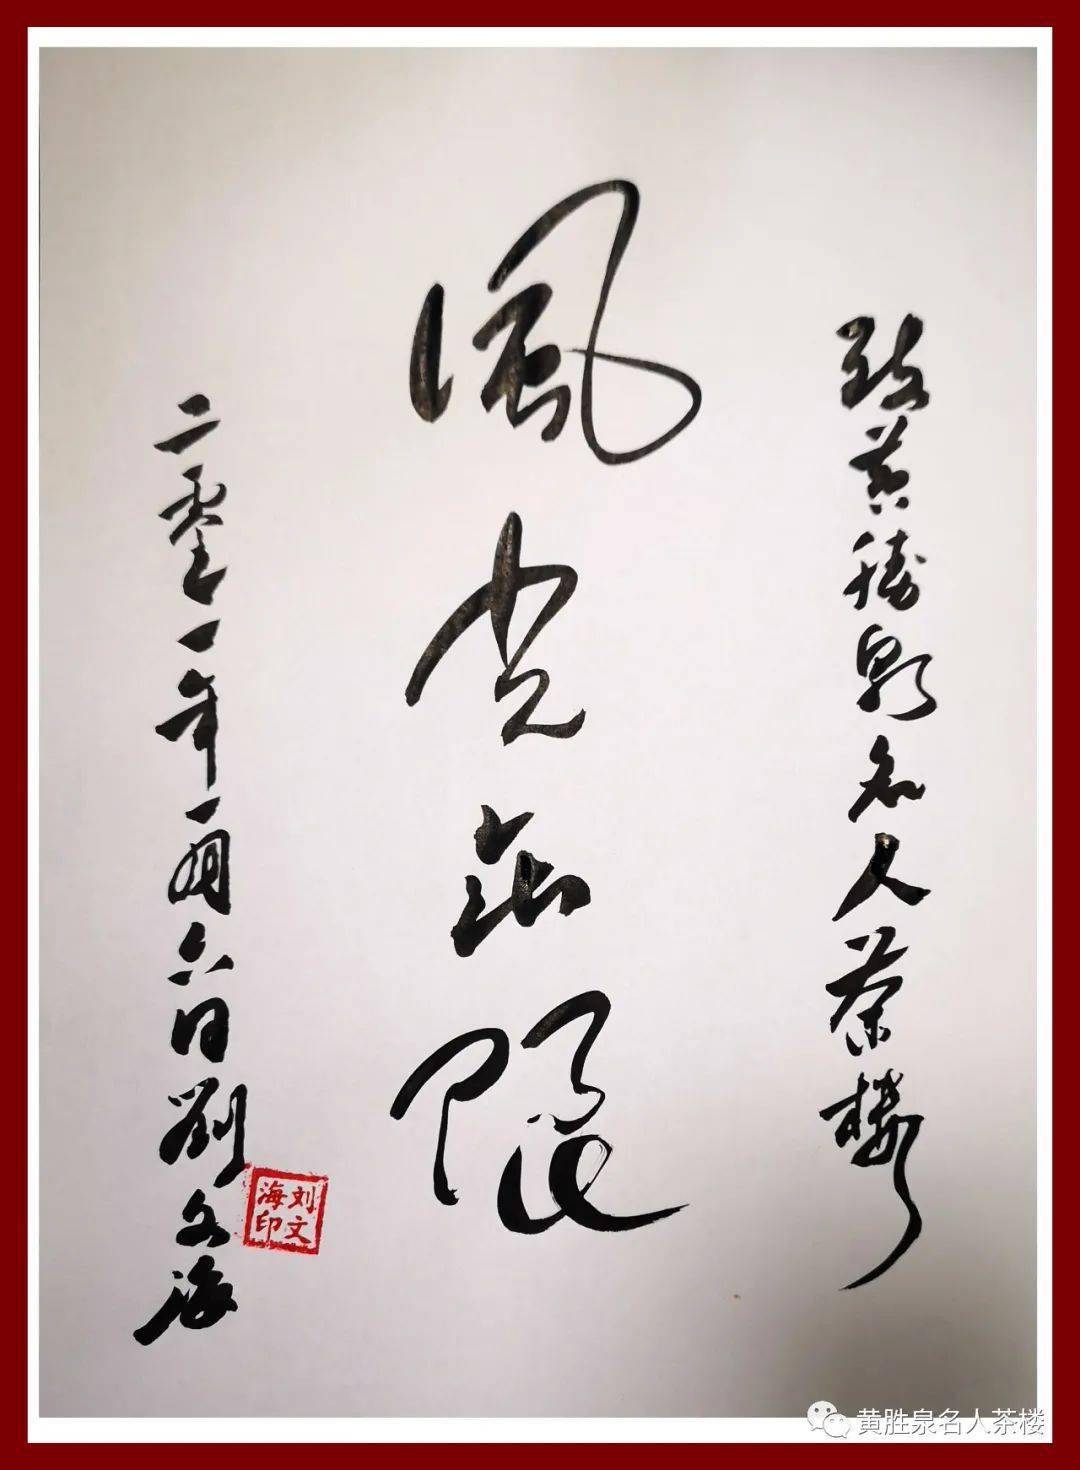 致黄勝泉名人茶樓
風光無限
二零二一年一月六日劉文海
刘文海印
黄胜泉名人茶楼